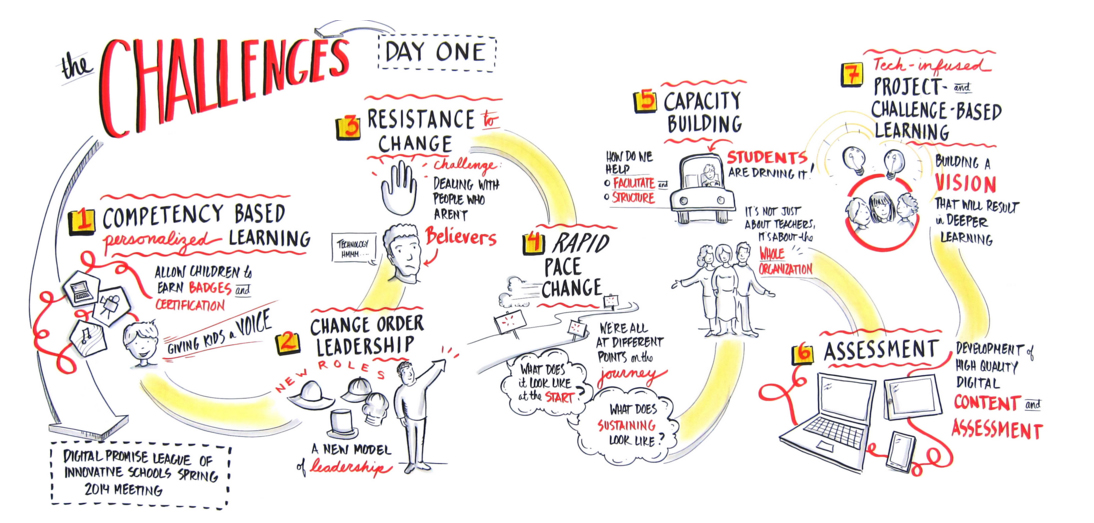 the CHALLENGES
DAY ONE
1 COMPETENCY BASED
personalized LEARNING
ALLOW CHILDREN to
EARN BADGES and
CERTIFICATION
GIVING KIDS a VOICE
DIGITAL PROMISE LEAGUE OF
INNOVATIVE SCHOOLS SPRING
2014 MEETING
2 CHANGE ORDER
LEADERSHIP
NEW ROLES
A NEW MODEL
of leadership
3 RESISTANCE to
CHANGE
challenge:
DEALING WITH
PEOPLE WHO
ARENT
Believers
TECHNOLOGY
HMMM...
4 RAPID
PACE
CHANGE
WE'RE ALL
AT DIFFERENT
POINTS on the
journey
WHAT DOES
it LOOK LIKE
at the START?
WHAT DOES
SUSTAINING
LOOK LIKE?
5 CAPACITY
BUILDING
HOW DO WE
HELP
FACILITATE and
STRUCTURE
STUDENTS
ARE DRIVING IT!
IT'S NOT JUST
ABOUT TEACHERS,
IT'S ABOUT the
WHOLE
ORGANIZATION
6 ASSESSMENT
DEVELOPMENT of
HIGH QUALITY
DIGITAL
CONTENT and
ASSESSMENT
7 Tech-infused
PROJECT- and
CHALLENGE-BASED
LEARNING
BUILDING A
VISION
THAT WILL RESULT
in DEEPER
LEARNING